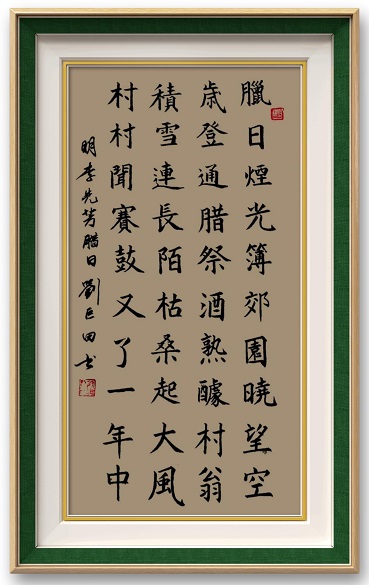 臘日煙光簿郊園曉望空
歳登通腊祭酒熟醵村翁
積雪連長陌枯桑起大風
村村聞賽鼓又了一年中
明李先芳腊日劉巨田书